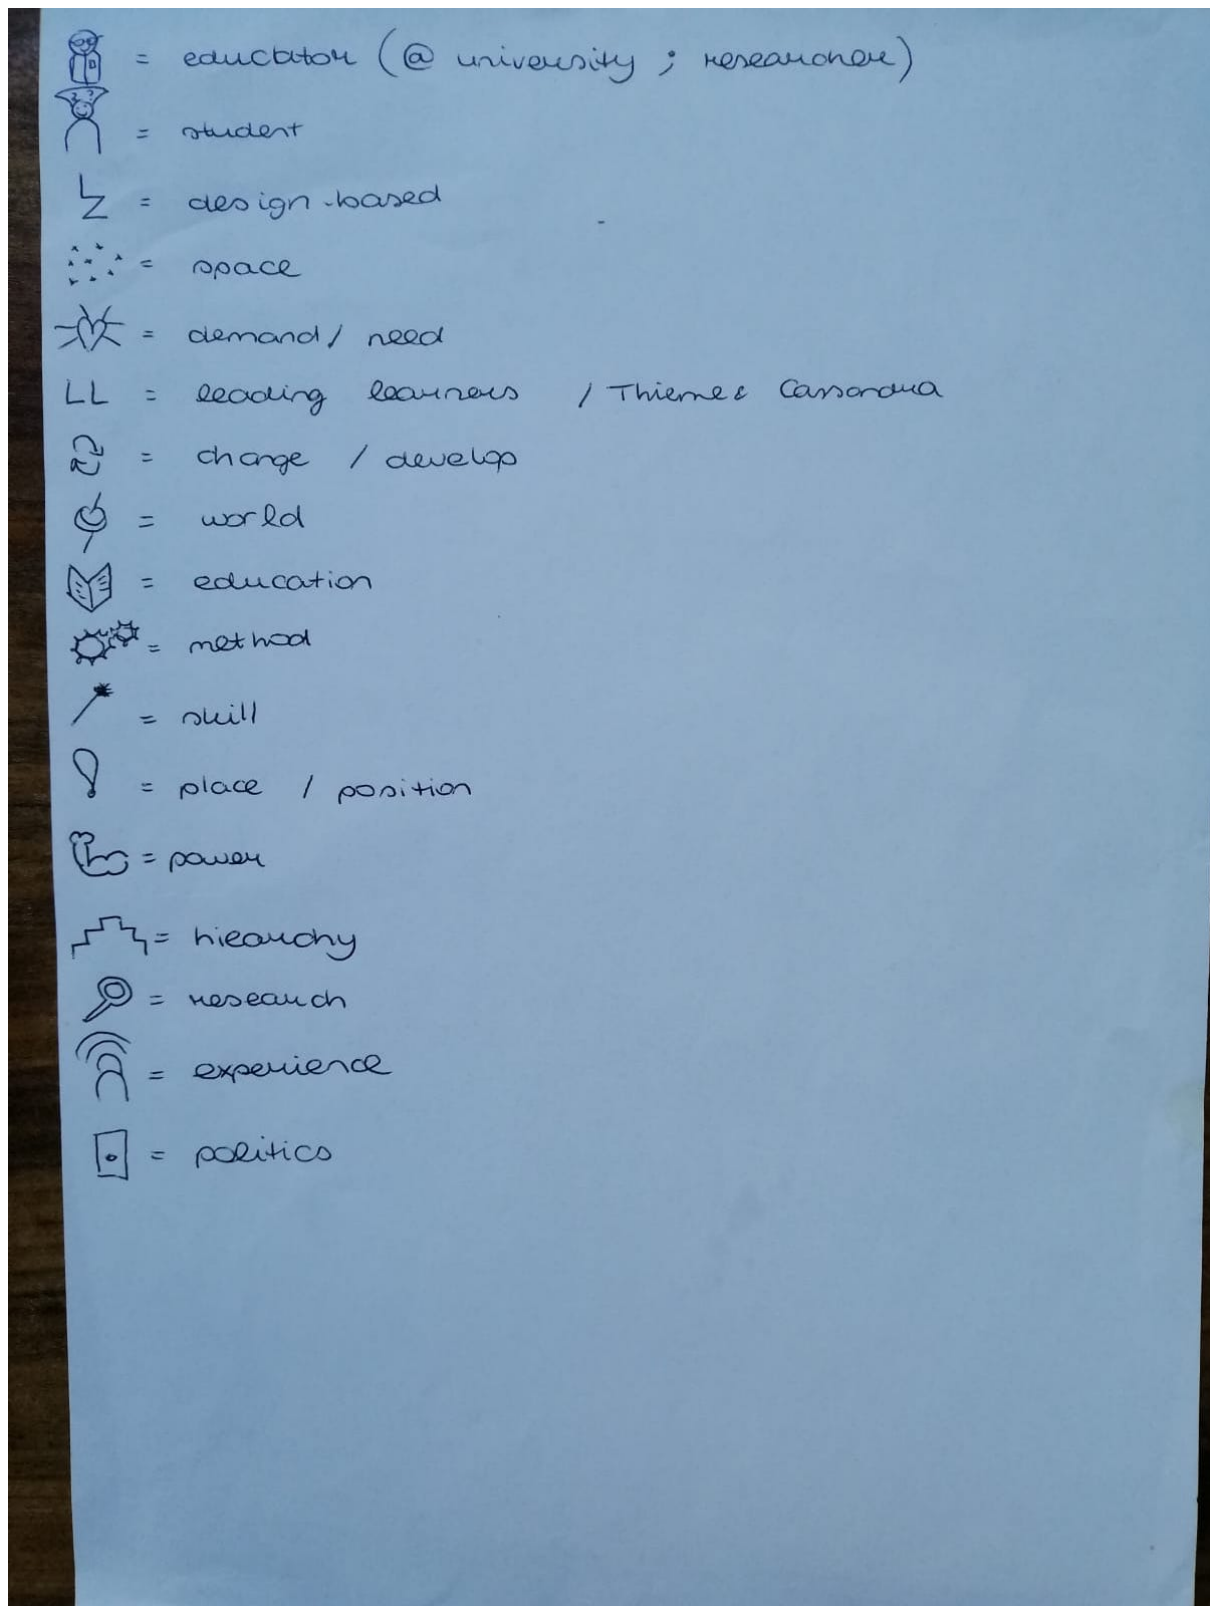 = educator (@ university ; researcher)
= student
= design-based
= space
= demand / need
LL = leading learners / Thieme & Cassandra
= change / develop
= world
= education
= method
= skill
= place / position
= power
= hiearchy
= research
= experience
= politics